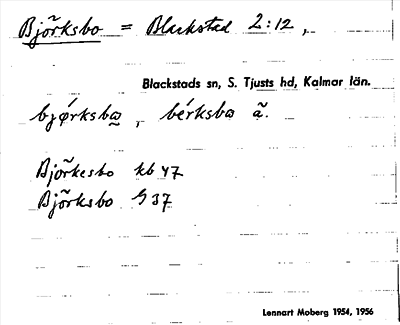 Björksbo = Blackstad 2:12,
Blackstads sn, S. Tjusts hd, Kalmar län.
bjǿrksbɷ, bérksbɷ ã.
Björkesbo kb 47
Björksbo G 37
Lennart Moberg 1954, 1956